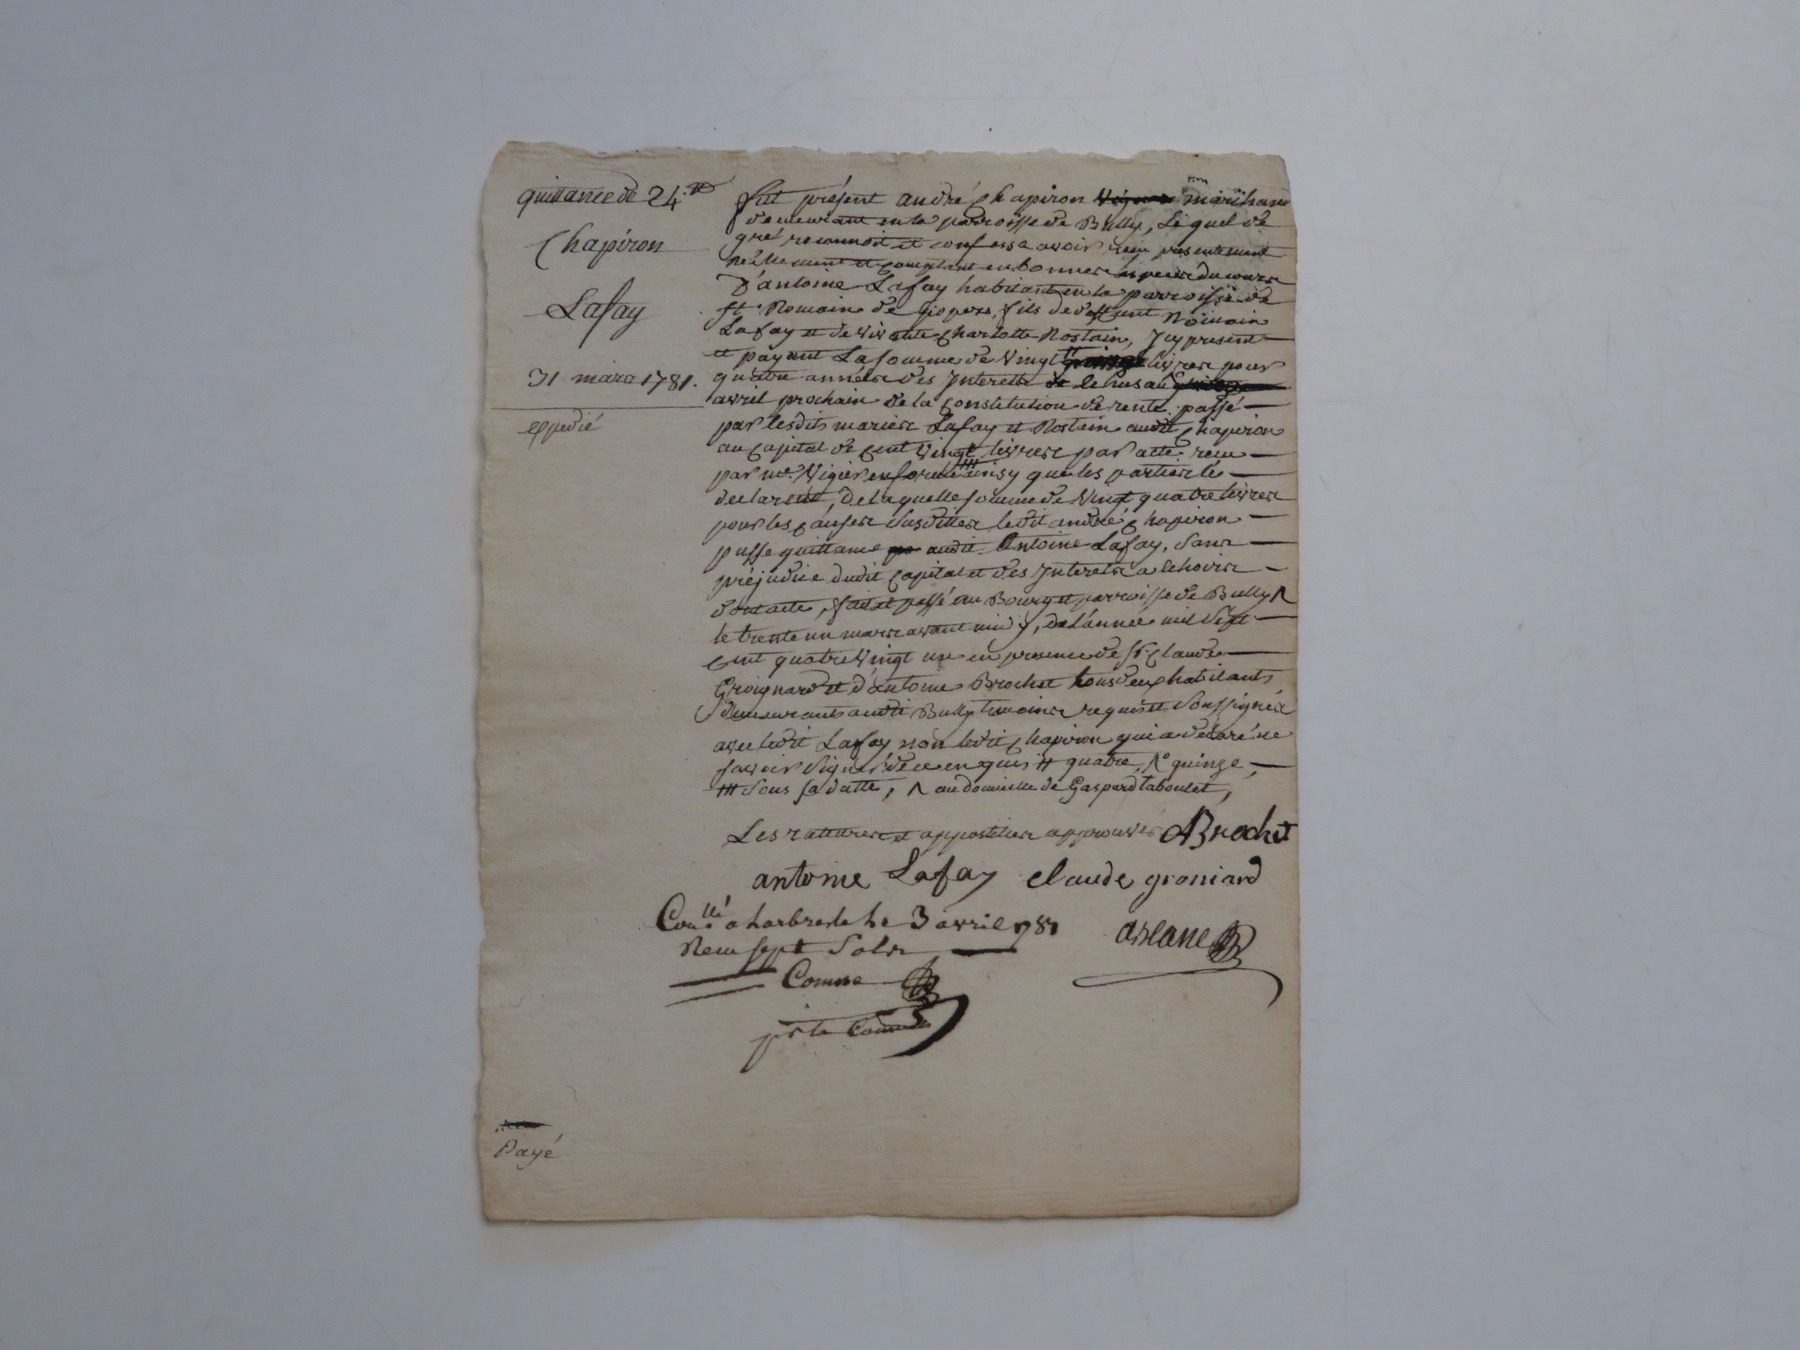 quittance de 24.#
Chapiron
Lafay
31 mars 1781.
expedié
fut présent andré Chapiron marchand
demeurant en la parroisse de Bully, Lequel de
gré reconnoit et confesse avoir reçu presentement
réellement et comptant en bonnes especes du cours
D'antoine Lafay habitant en la parroisse de
St. Romain de popeys, fils de deffunt Romain
Lafay et de vivante Charlotte Rostain, Icy present
et payant La somme de Vingt # livres pour
quatre années des Interets de echus au
avril prochain de la Constitution de rente passé
par lesdits mariés Lafay et Rostain audit Chapiron
au Capital de Cent Vingt livres par acte reçu
par me. Vigier en forme ### ainsy que les parties le
declarent, De laquelle somme de Vingt quatre livres
pour les Causes Susdittes ledit andré Chapiron
passe quittance audit Antoine Lafay, Sans
préjudice dudit Capital et des Interets a echoir
dont acte, fait et passé au Bourg et parroisse de Bully ^
le trente un mars avant midy, de L'année mil Sept
Cent quatre Vingt un en presence de Sr. Claude
Groignard et d'antoine Brochet tous deux habitants
demeurants audit Bully temoins requis et Soussignés
avec ledit Lafay non ledit Chapiron qui a declaré ne
savoir signer de ce enquis # quatre, quinze,
### Sous sa datte, ^ au domicille de Gaspard taboulet,
Les ratures et appostilles approuvés ABrochet
antoine Lafay claude groniard
Con.llé a Larbresle le 3 avril 1781
Reçu sept Sols
Comme
pr le Comme
Payé